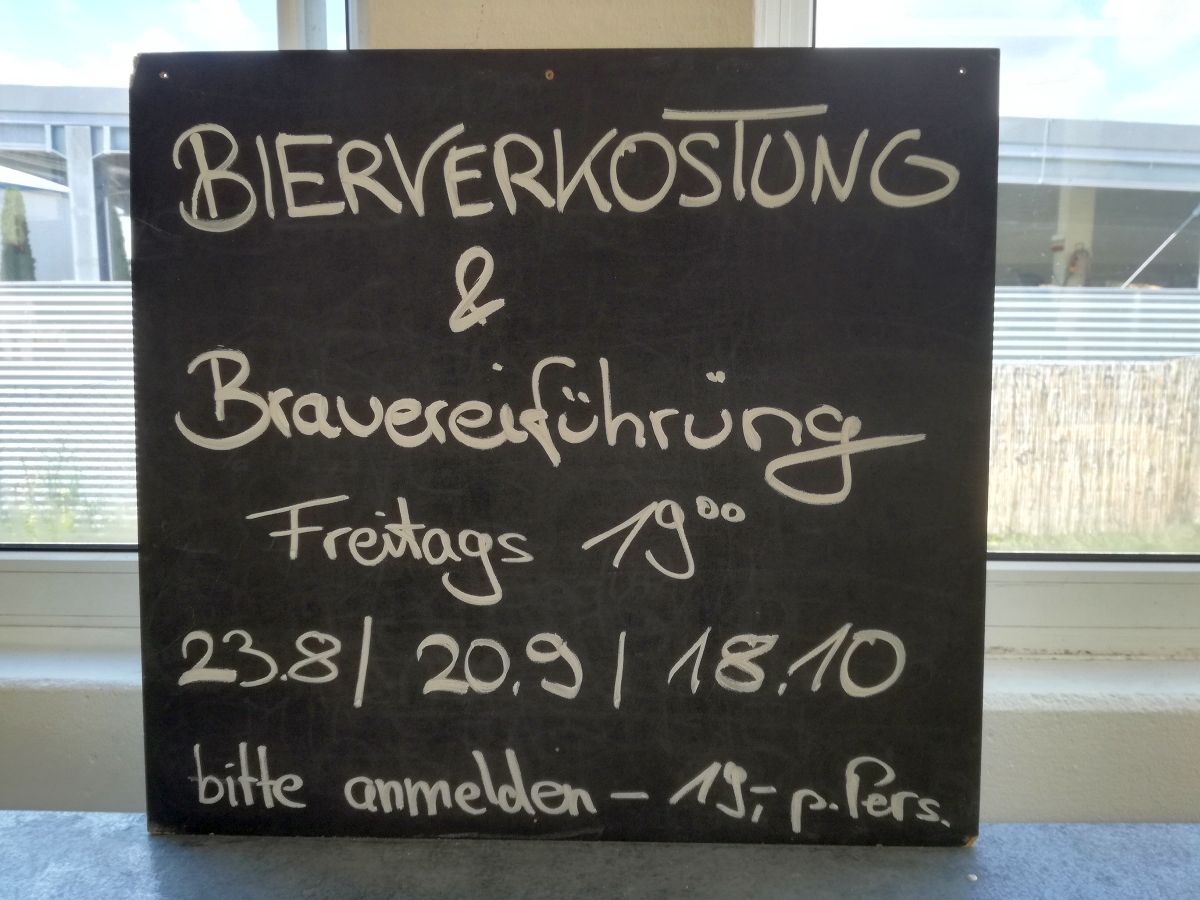 BIERVERKOSTUNG
&
Brauereiführüng
Freitags 19⁰⁰
23.8/ 20.9 / 18.10
bitte anmelden - 19,- p. Pers.